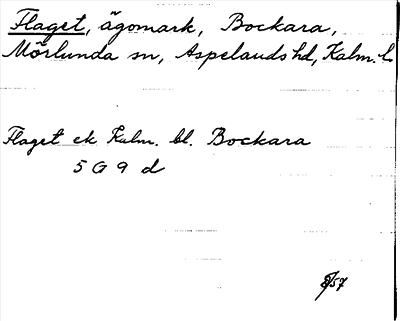 Flaget, ägomark, Bockara,
Mörlunda sn, Aspelands hd, Kalm. l.
Flaget ek Kalm. bl. Bockara
5 G 9 d
57